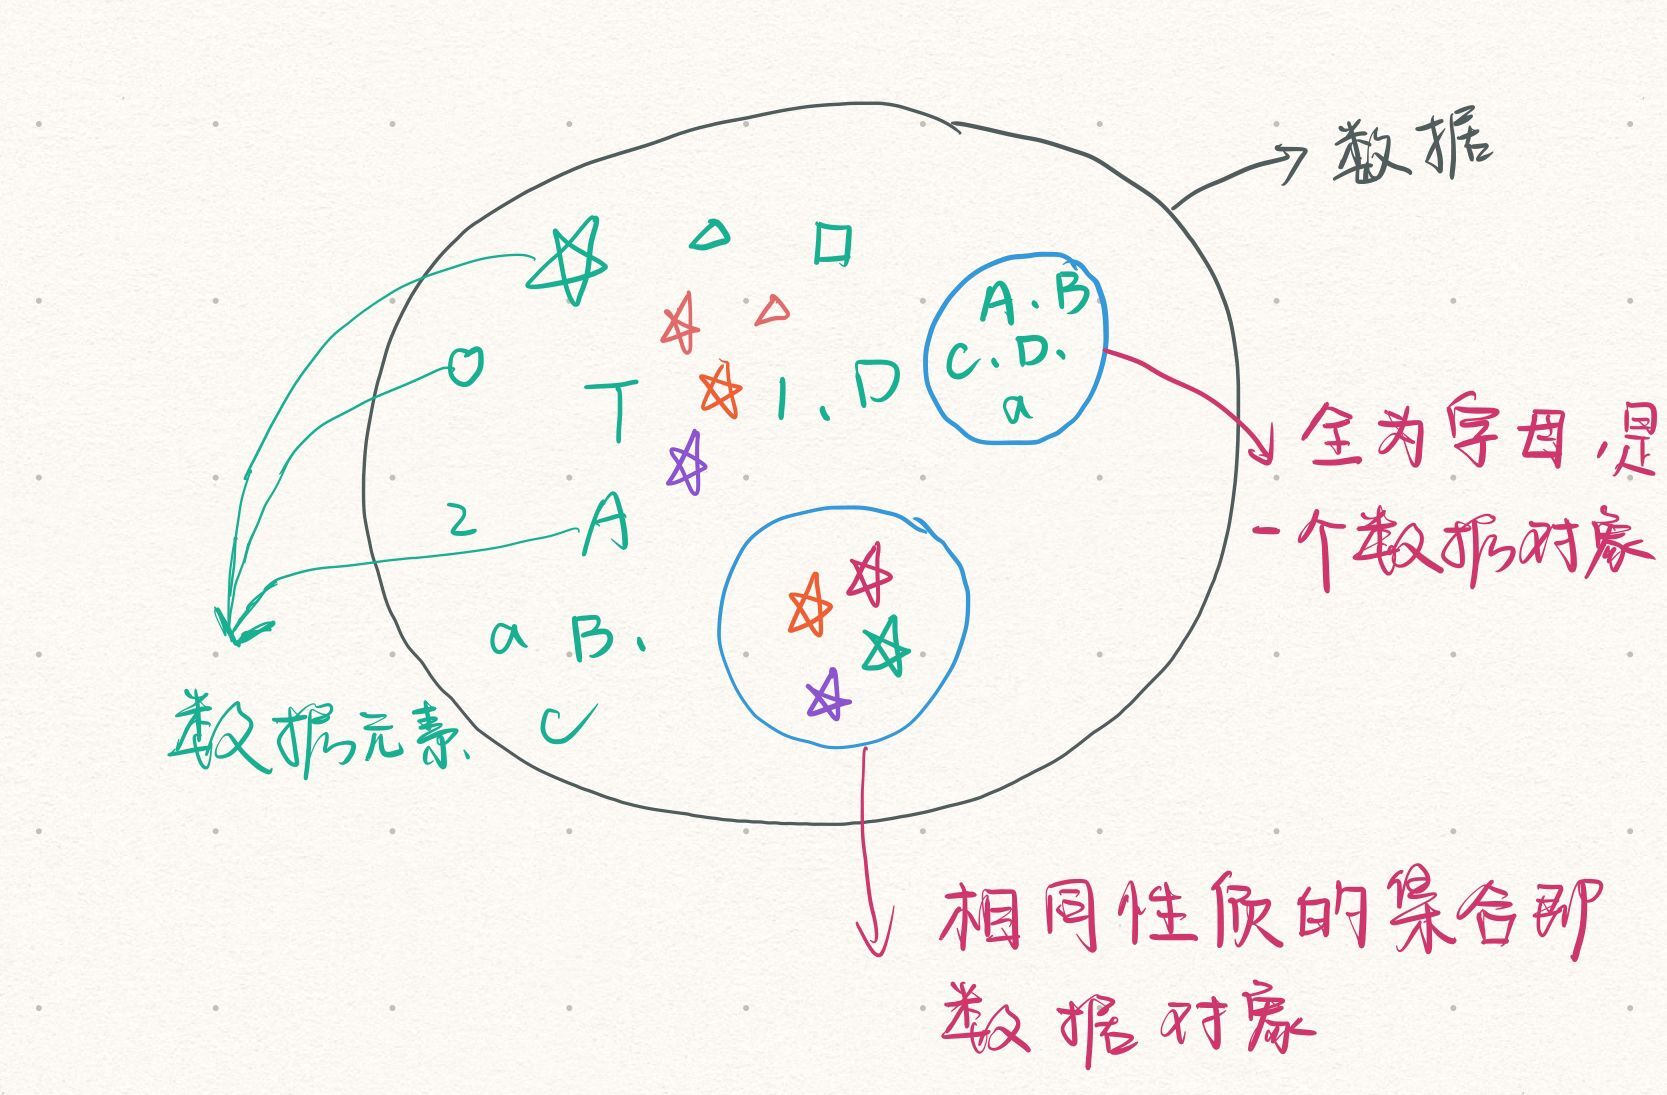 数据
A、B
C、D、
a
T
1、D
2
A
a B、
C
全为字母,是
一个数据对象
数据元素、
相同性质的集合即
数据对象